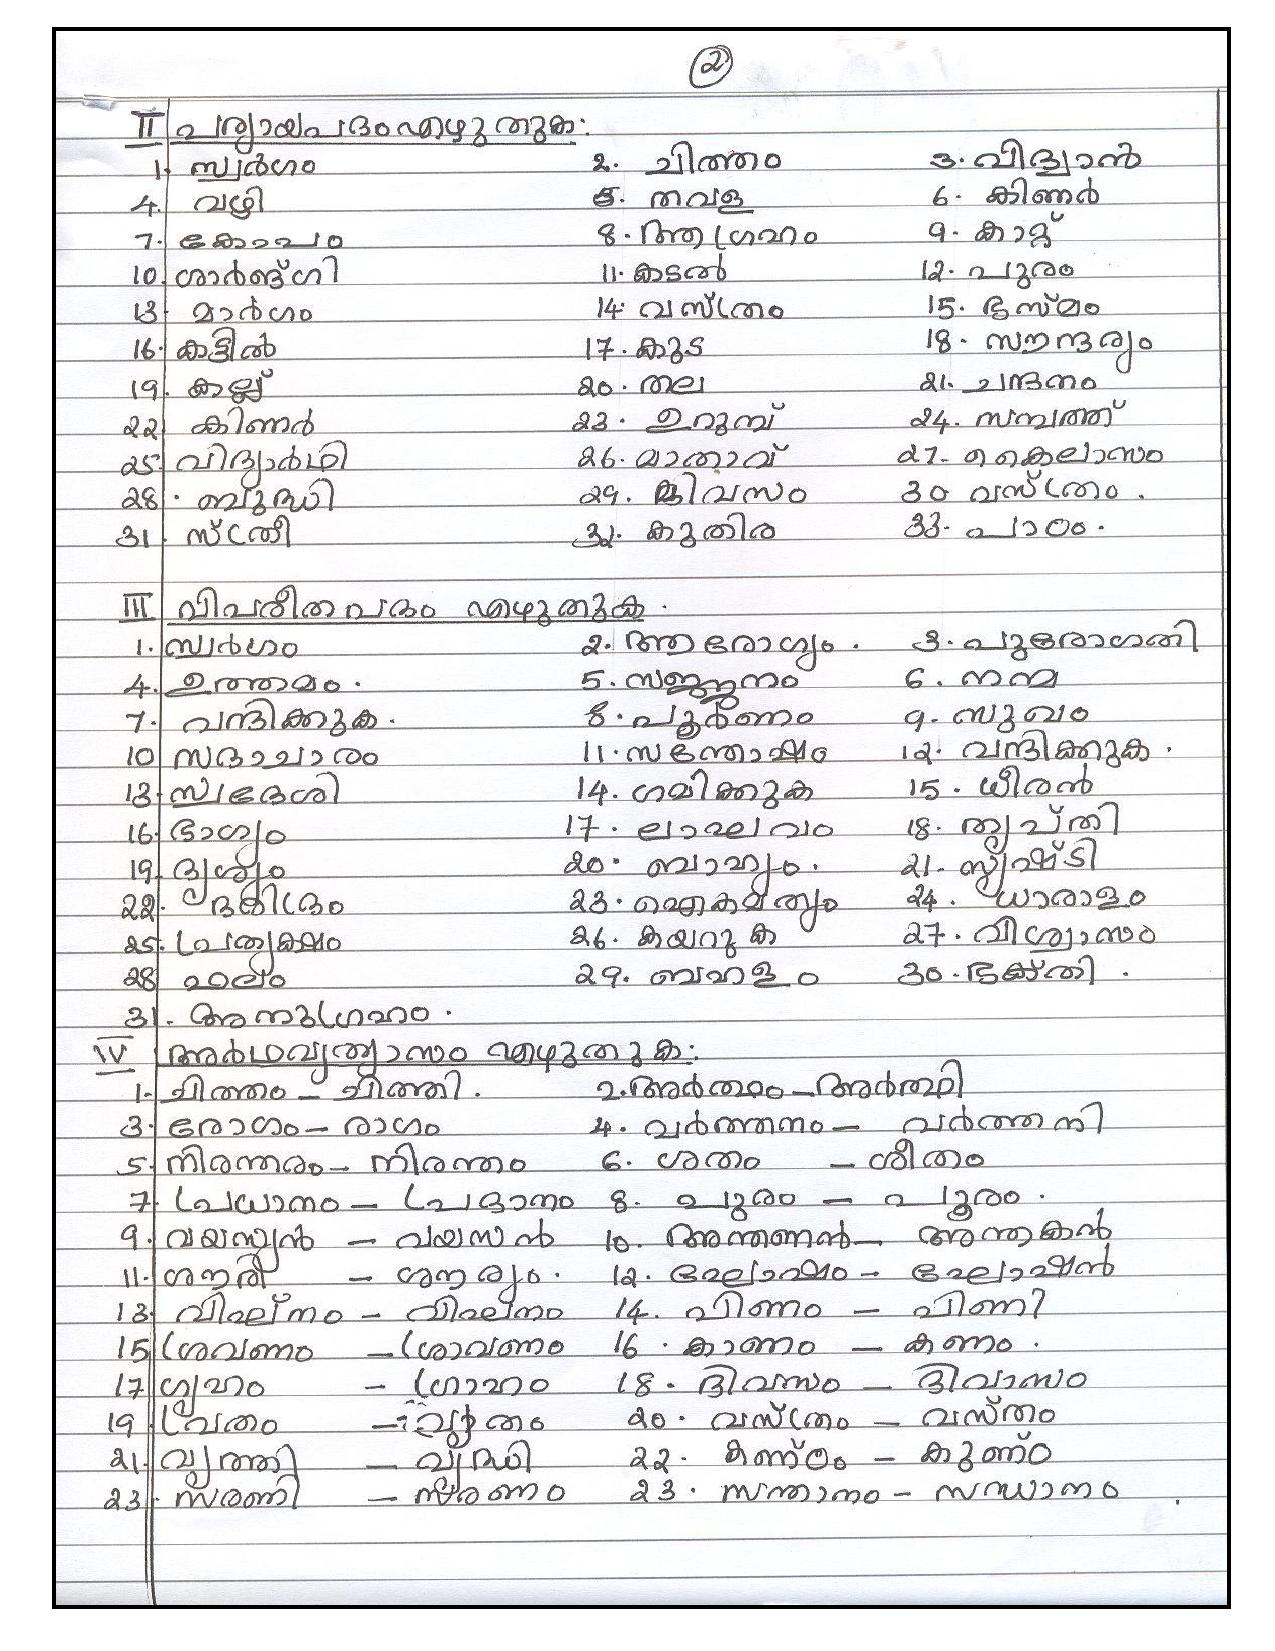 2
II പര്യായപദം എഴുതുക:
1. സ്വർഗം 2. ചിത്തം 3. വിദ്വാൻ
4. വഴി 5. തവള 6. കിണർ
7. കോപം 8. ആഗ്രഹം 9. കാറ്റ്
10 ശാർങ്ഗി 11. കടൽ 12. പുരം
13 മാർഗം 14. വസ്ത്രം 15. ഭസ്മം
16. കട്ടിൽ 17. കുട 18. സൗന്ദര്യം
19. കണ്ണ് 20. തല 21. ചന്ദനം
22 കിണർ 23. ഉറുമ്പ് 24. സമ്പത്ത്
25 വിദ്യാർഥി 26. മാതാവ് 27. കൈലാസം
28. ബുദ്ധി 29. ദിവസം 30 വസ്ത്രം.
31 സ്ത്രീ 32. കുതിര 33. പാഠം.
III വിപരീതപദം എഴുതുക.
1. സ്വർഗം 2. ആരോഗ്യം. 3. പുരോഗതി
4. ഉത്തമം. 5. സജ്ജനം 6. നന്മ
7. വന്ദിക്കുക. 8. പൂർണം 9. സുഖം
10 സദാചാരം 11. സന്തോഷം 12. വന്ദിക്കുക.
13 സ്വദേശി 14. ഗമിക്കുക 15. ധീരൻ
16. ഭാഗ്യം 17. ലാഘവം 18. തൃപ്തി
19. ദൃശ്യം 20. ബാഹ്യം. 21. സൃഷ്ടി
22. ദരിദ്രം 23. ഐകമത്യം 24. ധാരാളം
25. പ്രത്യക്ഷം 26. കയറുക 27. വിശ്വാസം
28 29. ബഹളം 30. ഭക്തി.
31. അനുഗ്രഹം.
IV അർഥവ്യത്യാസം എഴുതുക:
1. ചിത്തം - ചിത്തി. 2. അർത്ഥം - അർത്ഥി
3. രോഗം - രാഗം 4. വർത്തനം - വർത്തനി
5. നിരന്തരം - നിരന്തം 6. ശതം - ശീതം
7. പ്രധാനം - പ്രദാനം 8. പുരം - പൂരം.
9. വയസ്യൻ - വയസൻ 10. അന്തണൻ - അന്തകൻ
11. ശൗരി - ശൗര്യം. 12. ഘോഷം - ഘോഷൻ
13. വിഘ്നം - വിഘനം 14. ഘ്രിണം - ഘ്രിണി
15 ശ്രവണം - ശ്രാവണം 16. കാണം - കണം.
17 ഗൃഹം - ഗ്രാഹം 18. ദിവസം - ദിവാസം
19 വ്രതം - വൃതം 20. വസ്ത്രം - വസ്തം
21. വൃത്തി - വൃദ്ധി 22. കണ്ഠം - കുണ്ഠം
23. സരണി - സ്മരണം 23. സന്താനം - സന്ധാനം